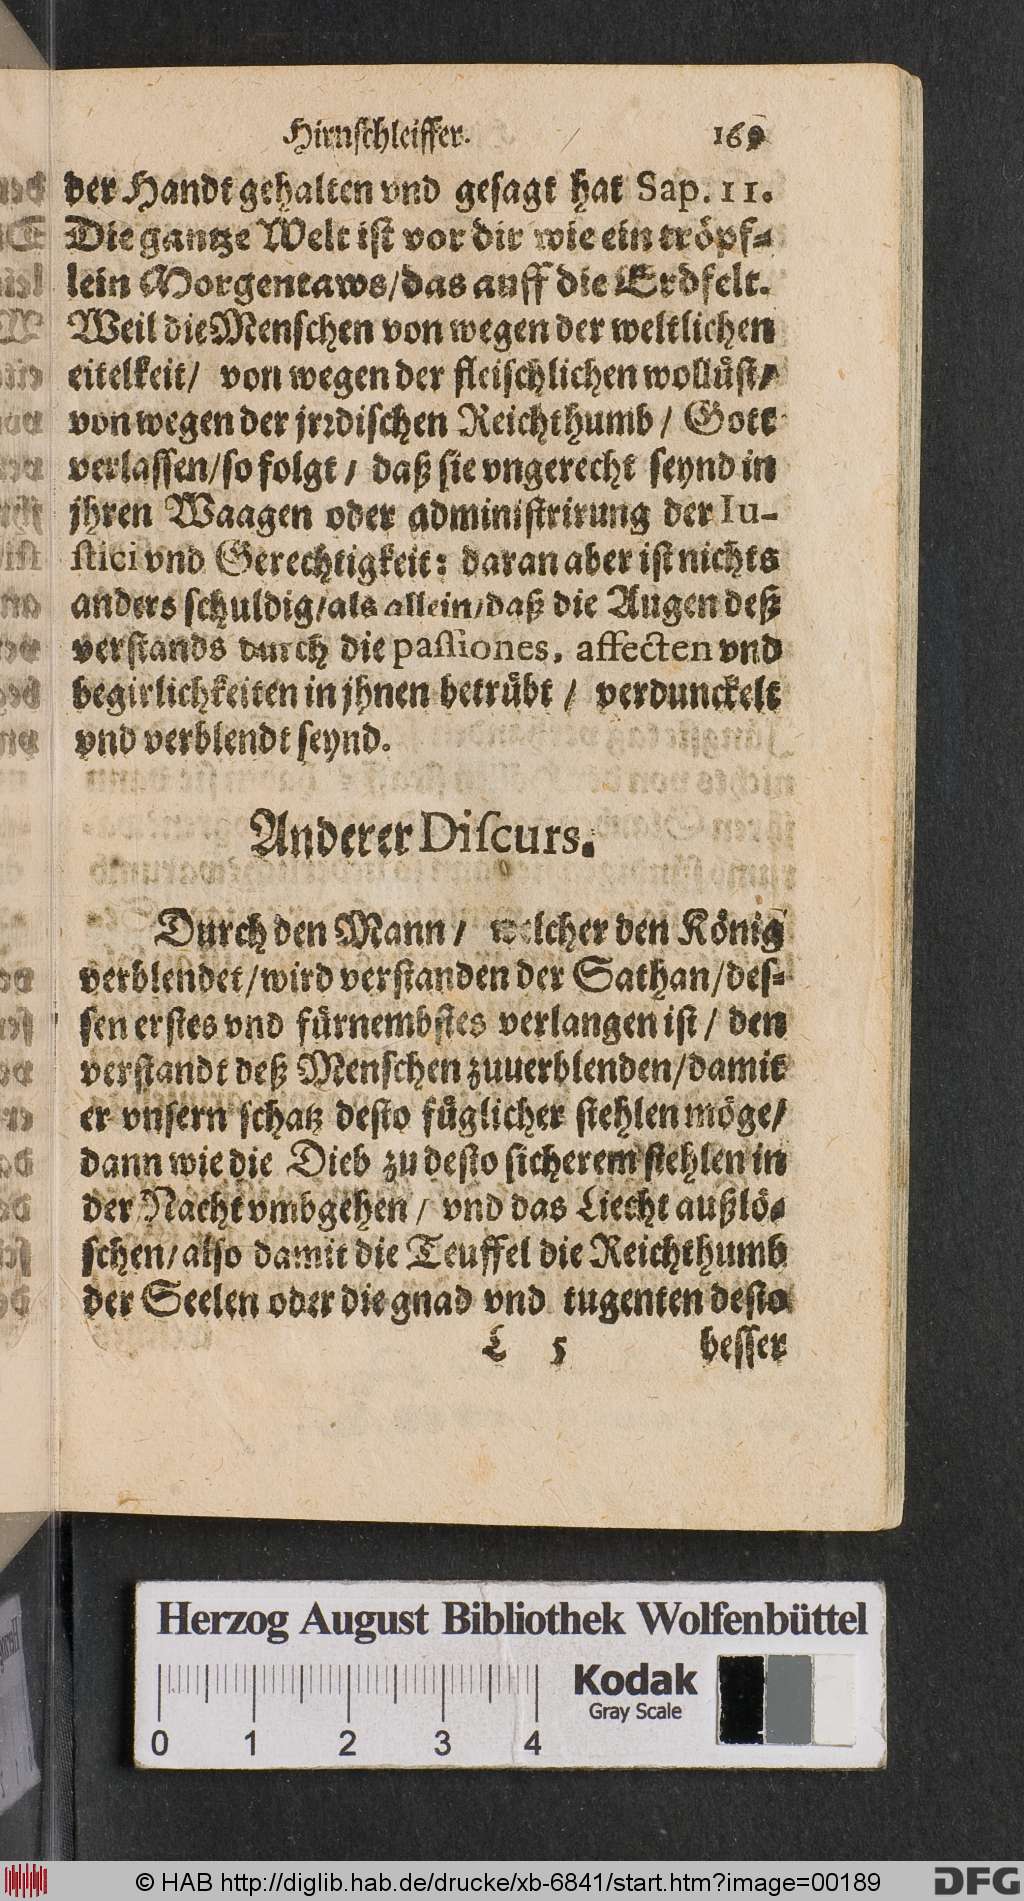 Hirnschleiffer. 169
der Handt gehalten vnd gesagt hat Sap. 11.
Die gantze Welt ist vor dir wie ein tröpf-
lein Morgentaws/das auff die Erd felt.
Weil die Menschen von wegen der weltlichen
eitelkeit/ von wegen der fleischlichen wollüst/
von wegen der jrrdischen Reichthumb/ Gott
verlassen/so folgt/ daß sie vngerecht seynd in
jhren Waagen oder administrirung der Iu-
stici vnd Gerechtigkeit: daran aber ist nichts
anders schuldig/als allein/daß die Augen deß
verstands durch die passiones, affecten vnd
begirlichkeiten in jhnen betrübt/ verdunckelt
vnd verblendt seynd.
Anderer Discurs.
Durch den Mann/ welcher den König
verblendet/wird verstanden der Sathan/des-
sen erstes vnd fürnembstes verlangen ist/ den
verstandt deß Menschen zuuerblenden/damit
er vnsern schatz desto füglicher stehlen möge/
dann wie die Dieb zu desto sicherem stehlen in
der Nacht vmbgehen/ vnd das Liecht außlö-
schen/also damit die Teuffel die Reichthumb
der Seelen oder die gnad vnd tugenten desto
L 5 besser
Herzog August Bibliothek Wolfenbüttel
Kodak
Gray Scale
0 1 2 3 4
© HAB http://diglib.hab.de/drucke/xb-6841/start.htm?image=00189
DFG